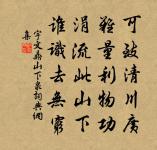 可致清川廣
難量利物功
涓流此山下
誰識去無窮
宇文鼎山下泉詞典網
集